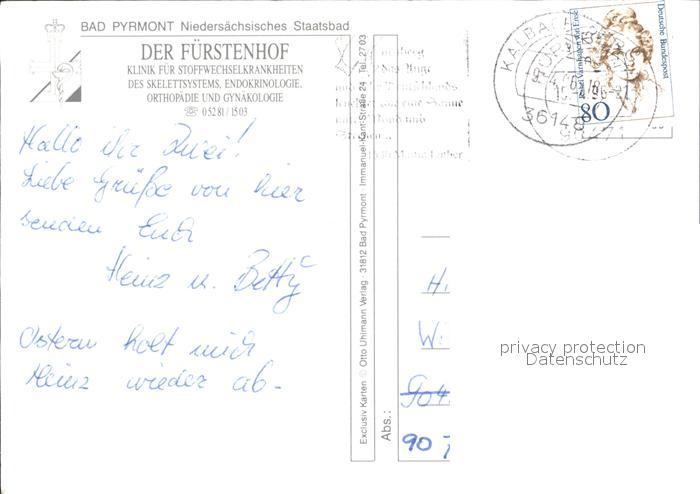 BAD PYRMONT Niedersächsisches Staatsbad
DER FÜRSTENHOF
KLINIK FÜR STOFFWECHSELKRANKHEITEN
DES SKELETTSYSTEMS, ENDOKRINOLOGIE,
ORTHOPÄDIE UND GYNÄKOLOGIE
☏ 05281/1503
Hallo ihr Zwei!
Liebe Grüße von hier
senden Euch
Heinz u. Betty
Ostern holt mich
Heinz wieder ab-
Exclusiv Karten © Otto Uhlmann Verlag · 31812 Bad Pyrmont Immanuel-Kant-Straße 24 Tel. 27 03
Abs.:
Deutsche Bundespost
80
KALBACH
36148
H.
W.
904
90
privacy protection
Datenschutz